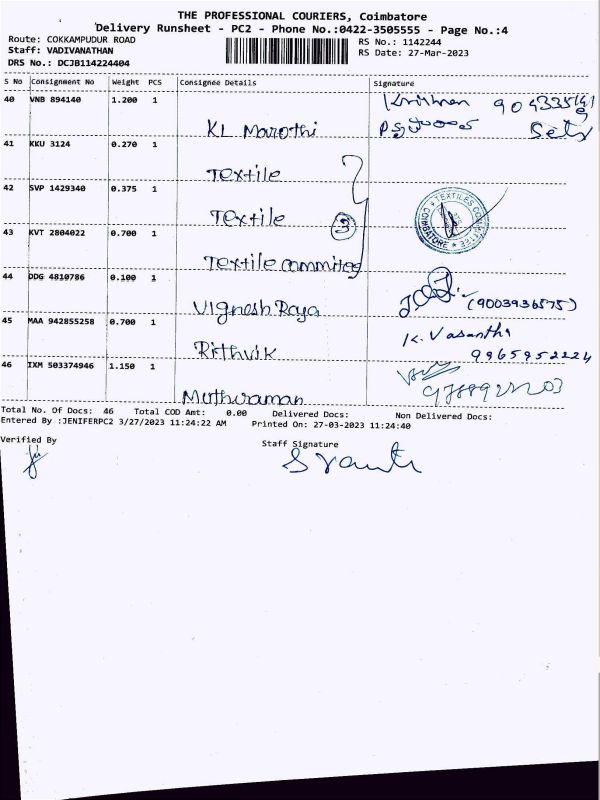 THE PROFESSIONAL COURIERS, Coimbatore
Delivery Runsheet - PC2 - Phone No.:0422-3505555 - Page No.:4
Route: COKKAMPUDUR ROAD
Staff: VADIVANATHAN
DRS No.: DCJB114224404
RS No.: 1142244
RS Date: 27-Mar-2023
S No Consignment No Weight PCS Consignee Details Signature
40 VNB 894140 1.200 1 KL Marothi Krishnan
41 KKU 3124 0.270 1 Textile
42 SVP 1429340 0.375 1 Textile 3
43 KVT 2804022 0.700 1 Textile commitee
TEXTILES COMMITTEE ★ COIMBATORE ★
44 DDG 4810786 0.100 1 Vignesh Raja (9003936575)
45 MAA 942855258 0.700 1 Rithvik K. Vasantha
9965952224
46 IXM 503374946 1.150 1 Muthuraman
Total No. Of Docs: 46 Total COD Amt: 0.00 Delivered Docs: Non Delivered Docs:
Entered By :JENIFERPC2 3/27/2023 11:24:22 AM Printed On: 27-03-2023 11:24:40
Verified By Staff Signature